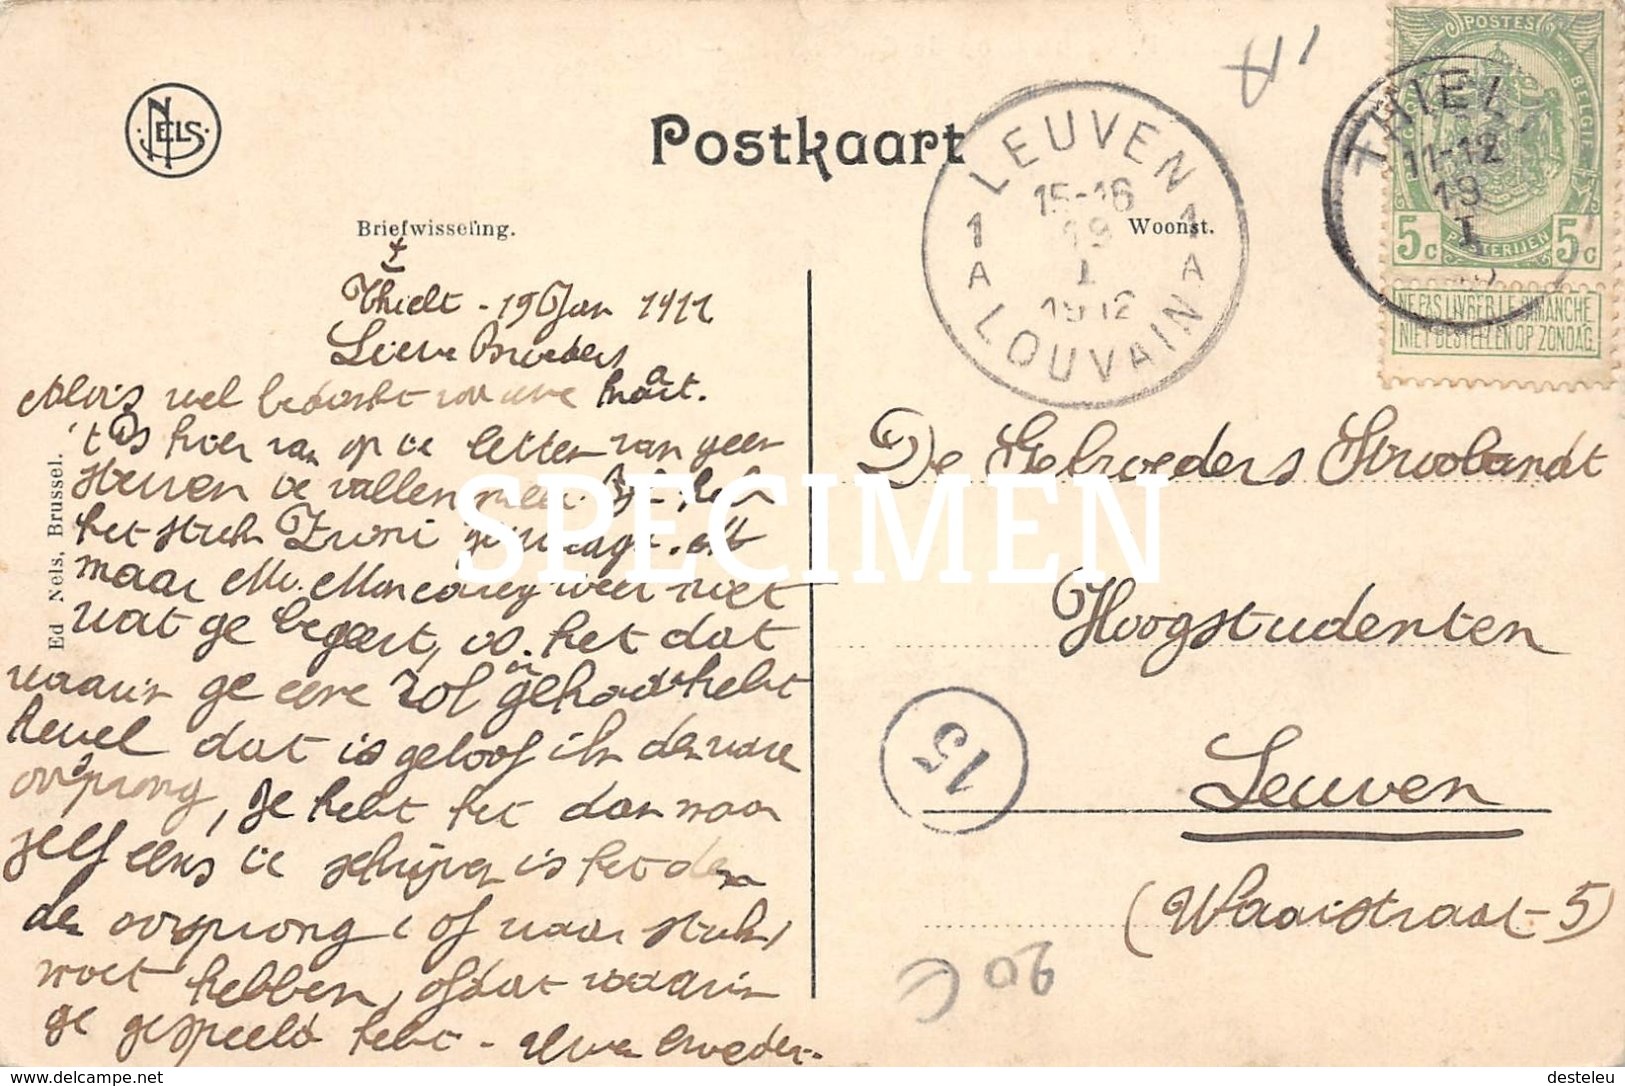 NELS
Postkaart
Briefwisseling.
Woonst.
Ed Nels, Brussel.
POSTES
BELGIE
5c POSTERIJEN 5c
NE PAS LIVRER LE DIMANCHE
NIET BESTELLEN OP ZONDAG
THIEL
11-12
19
I
LEUVEN
15-16
19
I
1912
1A 1A
LOUVAIN
Thielt - 19 Jan 1912
Lieve Broeders
Alvis wel bedankt voor uwe kaart.
't Is hier van op de letter van geen
sterren te vallen meer.
het stuk gevraagd.
maar Mr. weet niet
wat ge begeert, is het dat
waarin ge eene rol in gehad hebt
hewel dat is geloof ik den waren
oorsprong, Je hebt het dan maar
zelf eens te schrijven is het den
den oorsprong of waar stuk,
moet hebben, ofdat waarin
ge gespeeld hebt - Uwen broeder.
De Gebroeders Stroobandt
Hoogstudenten
Leuven
(Waaistraat-5)
15
20 €
SPECIMEN
delcampe.net
desteleu